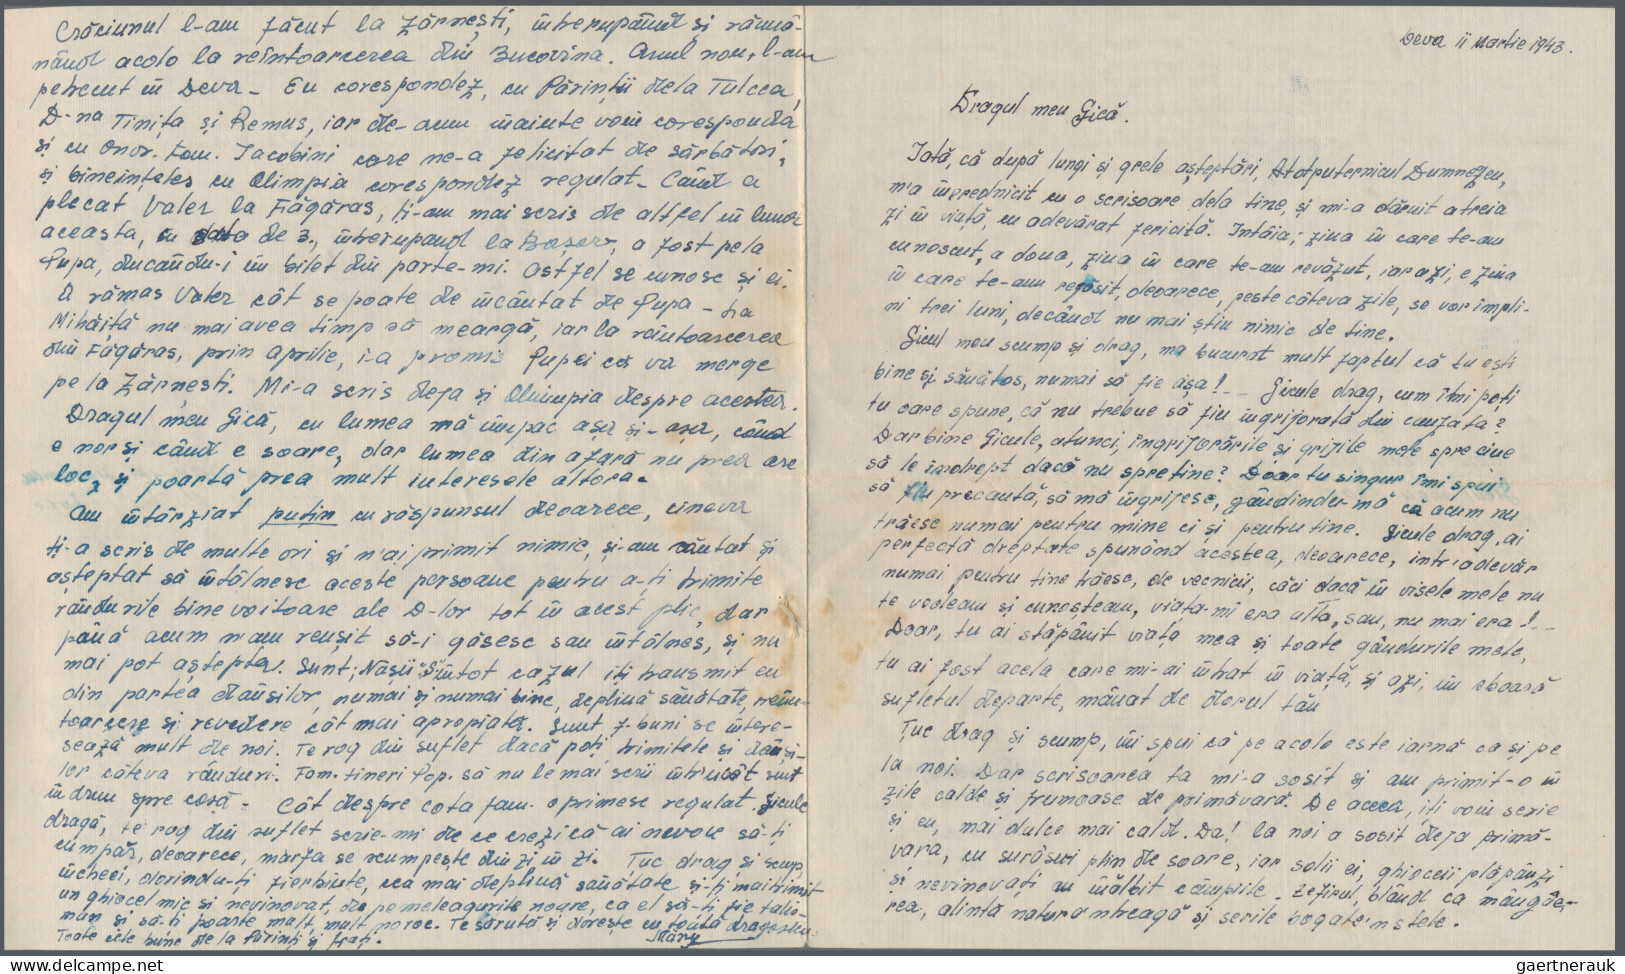 Deva 11 Martie 1943.
Dragul meu Gică.
Iată, că după lungi și grele așteptări, Atotputernicul Dumnezeu,
m'a învrednicit cu o scrisoare dela tine, și mi-a dăruit a treia
zi în viață, cu adevărat fericită. Întâia; ziua în care te-am
cunoscut, a doua, ziua în care te-am revăzut, iar azi, e ziua
în care te-am regăsit, deoarece, peste câteva zile, se vor împli-
ni trei luni, decând nu mai știu nimic de tine.
Gicul meu scump și drag, ma bucurat mult faptul că tu ești
bine și sănătos, numai să fie așa! - Gicule drag, cum îmi poți
tu oare spune, că nu trebue să fiu îngrijorată din cauza ta?
Dar bine Gicule, atunci, îngrijorările și grijile mele spre cine
să le îndrept dacă nu spre tine? Doar tu singur îmi spui
să fiu precaută, să mă îngrijesc, gândindu-mă că acum nu
trăesc numai pentru mine ci și pentru tine. Gicule drag, ai
perfectă dreptate spunând acestea, deoarece, într'adevăr
numai pentru tine trăesc, de vecnicii, căci dacă în visele mele nu
te vedeam și cunoșteam, viața-mi era alta, sau, nu mai era! -
Doar, tu ai stăpânit viața mea și toate gândurile mele,
tu ai fost acela care mi-ai intrat în viață, și azi, îmi sboară
sufletul departe, mânat de dorul tău
Țuc drag și scump, îmi spui că pe acolo este iarnă ca și pe
la noi. Dar scrisoarea ta mi-a sosit și am primit-o în
zile calde și frumoase de primăvară. De aceea, iți voiu scrie
și eu, mai dulce mai cald. Da! la noi a sosit deja primă-
vara, cu surâsuri plin de soare, iar solii ei, ghioceii plăpânzi
și nevinovați au înălbit câmpiile. Zefirul, blând ca mângâe-
rea, alintă natura întreagă și serile bogate'n stele.
Crăciunul l-am făcut la Zărnești, întrerupând și rămâ-
nând acolo la reîntoarcerea din Bucovina. Anul nou, l-am
petrecut în Deva - Eu corespondez, cu Părinții dela Tulcea,
D-na Tinița și Remus, iar de-acum înainte voiu coresponda
și cu Onor. Fam. Iacobini care ne-a felicitat de sărbători,
și bineînțeles cu Olimpia corespondez regulat - Când a
plecat Valer la Făgăras, ți-am mai scris de altfel în lunea
aceasta, în data de 3., întrerupand la Bașer, a fost pe la
Pupa, ducându-i un bilet din parte-mi. Astfel se cunosc și ei.
A rămas Valer cât se poate de încântat de Pupa - La
Mihăiță nu mai avea timp să meargă, iar la reîntoarcerea
din Făgăras, prin aprilie, i-a promis Pupei că va merge
pe la Zărnești. Mi-a scris deja și Olimpia despre acestea.
Dragul meu Gică, cu lumea mă împac așa și-așa, când
e nor și când e soare, dar lumea din afară nu prea are
loc, și poartă prea mult interesele altora.
Am întârziat puțin cu răspunsul deoarece, cineva
ți-a scris de multe ori și n'ai primit nimic, și-am căutat și
așteptat să întâlnesc aceste persoane pentru a-ți trimite
rândurile binevoitoare ale D-lor tot în acest plic, dar
până acum n'am reușit să-i găsesc sau întâlnes, și nu
mai pot aștepta. Sunt; Nașii "S" întot cazul îți transmit eu
din partea dânșilor, numai și numai bine, deplină sănătate, rein-
toarcere și revedere cât mai apropiată. Sunt f. buni se intere-
sează mult de noi. Te rog din suflet dacă poți, trimitele și dânși-
lor câteva rânduri. Fam. tineri Pop. să nu le mai scrii întrucât sunt
în drum spre casă - Cât despre cota fam. o primesc regulat. Gicule
dragă, te rog din suflet scrie-mi de ce crezi că ai nevoie să-ți
cumpăr, deoarece, marfa se scumpește din zi în zi. Țuc drag și scump,
închei, dorindu-ți fierbinte, cea mai deplină sănătate și-ți mai trimit
un ghiocel mic și nevinovat, de pe meleagurile noare, ca el să-ți fie talis-
man și să-ți poarte mult, mult noroc. Te sărută și dorește cu toată dragostea
Toate cele bune de la Părinți și frați. Măry
gaertnerauk